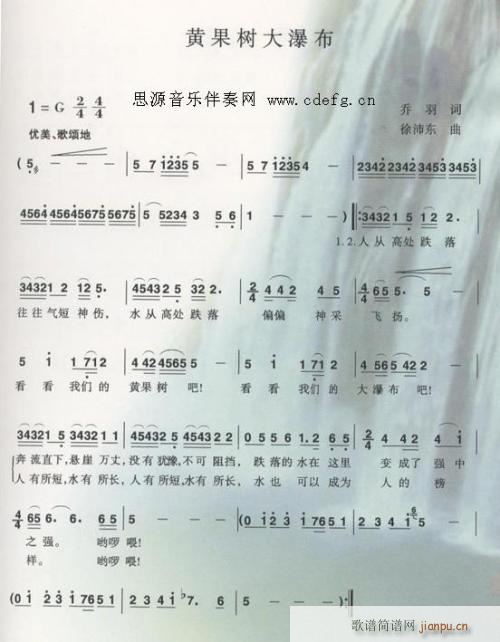 黄果树大瀑布
思源音乐伴奏网 www.cdefg.cn
1=G 2/4 4/4
乔羽 词
优美、歌颂地
徐沛东 曲
(5 - - - 5 7 1235 5 - - 2342 2342 3453 3453
4564 4564 5675 5675 5 5234 3 5 6 1 - - ) :34321 5 122 2.
1.2.人从高处跌落
34321 2 1 12 5. 45432 5 5 5 2 2/4 2 4 4 2 4/4 6 5 5 - -
往往气短神伤, 水从高处跌落 偏偏 神采 飞扬。
5 1 1 712 4 42 4565 5 5 - - - 5 1 1 712 4 565 422 2 -
看看我们的 黄果树吧! 看看我们的 大瀑布吧!
34321 5 34321 2 34321 5 34321 1 45432 5 45432 2 0 5 5 6 1. 2 6 5 2/4 4 42 4 1
奔流直下,悬崖万丈,没有犹豫,不可阻挡, 跌落的水在这里 变成了强中
人有所短,水有所长,人有所短,水有所长, 水也可以成为 人的榜
4/4 65 6. 6. 5 5 - - - (0 12 3 1 765 5 0 234 2 1 5 - -
之强。 哟啰喂!
样。 哟啰喂!
(0 12 3 1 765 0 234 2 1 b7. 6 5 - - -):
歌谱简谱网
jianpu.cn